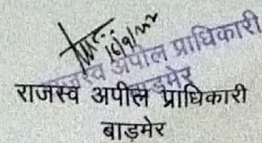 16/9/22
राजस्व अपील प्राधिकारी
बाड़मेर
राजस्व अपील प्राधिकारी
बाड़मेर